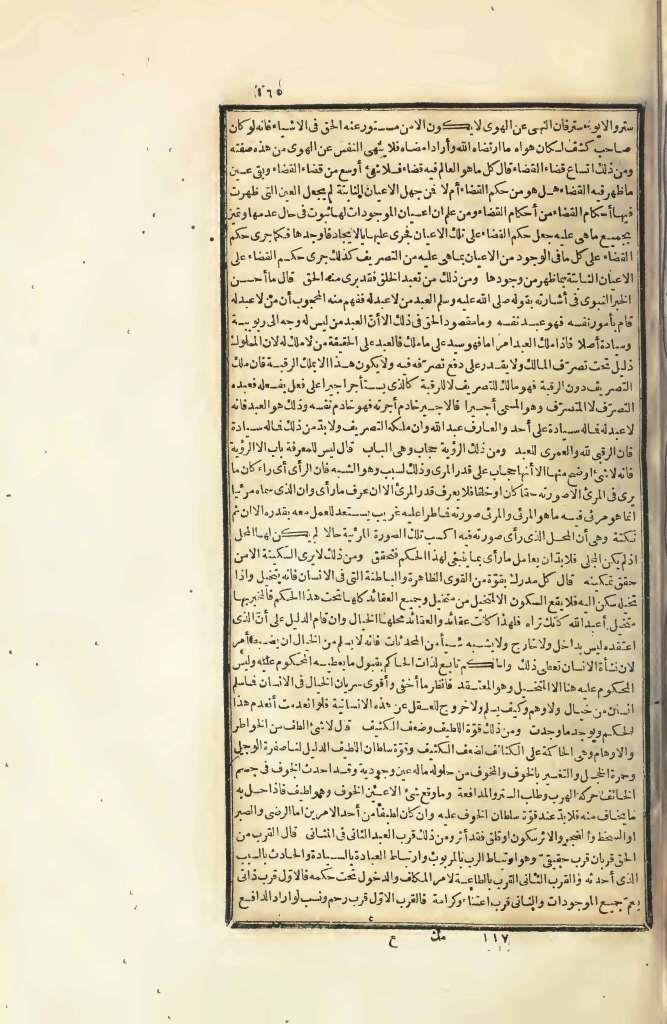 ٤٦٥
ستر والابوة ستر فان النهى عن الهوى لا يكون الا من مستور عنه الحق فى الاشياء فانه لو كان
صاحب كشف لكان هواه ما ارتضاه الله وأراد امضاءه فلا ينهى النفس عن الهوى من هذه صفته
ومن ذلك اتساع قضاء القضاء قال كل ما هو العالم فيه قضاء فلا شئ أوسع من قضاء القضاء وبقى عين
ما ظهر فيه القضاء هل هو من حكم القضاء أم لا فمن جهل الاعيان الثابتة لم يجعل العين التى ظهرت
فيها أحكام القضاء من أحكام القضاء ومن علم ان اعيان الموجودات لها ثبوت فى حال عدمها وتميز
بجميع ما هى عليه جعل حكم القضاء على تلك الاعيان فجرى عليها بالايجاد فأوجدها فكما جرى حكم
القضاء على كل ما فى الوجود من الاعيان بما هى عليه من التصريف كذلك جرى حكم القضاء على
الاعيان الثابتة بما ظهر من وجودها ومن ذلك من تعبد الخلق فقد برى منه الحق قال ما أحسن
الخبر النبوى فى أشارته بقوله صلى الله عليه وسلم العبد من لا عبد له ففهم منه المحجوب أن من لا عبد له
قام بأمور نفسه فهو عبد نفسه وما مقصود الحق فى ذلك الا أن العبد من ليس له وجه الى ربوبية
وسيادة أصلا فاذا ملك العبد امرا ما فهو سيد على ما ملك فالعبد على الحقيقة من لا ملك له لان المملوك
ذليل تحت تصرف المالك ولا يقدر على دفع تصرفه فيه ولا يكون هذا الا بملك الرقبة فان ملك
التصريف دون الرقبة فهو مالك للتصريف لا للرقبة كالذى يستأجر أجيرا على فعل يفعله فعبده
التصرف لا المتصرف وهو المسمى أجيرا فالاجير خادم أجرته فهو خادم نفسه وذلك هو العبد فانه
لا عبد له فماله سيادة على أحد والعارف عبد الله وان ملكه التصريف ولا بد من ذلك فماله سيادة
فان الرقبى لله والعمرى للعبد ومن ذلك الرؤية حجاب وهى الباب قال ليس للمعرفة باب الا الرؤية
فانه لا شئ أوضح منها الا أنها حجاب على قدر المرى وذلك لسبب وهو الشبه فان الرائى أى راء كان ما
يرى فى المرئى الا صورته حقا كان او خلقا فلا يعرف قدر المرئى الا ان يعرف ما رأى وان الذى سماه مرئيا
انما هو مرئى فيه ما هو المرئى والمرئى صورته فما طرأ عليه غريب يستعد للعمل معه بقدره الا ان ثم
نكتة وهى أن المحل الذى رأى صورته فيه اكسب تلك الصورة المرئية حالا لم يكن لها المحل
اذ لم يكن المجلى فلا بد ان يعامل ما رأى بما ينبغى لهذا الحكم فتحقق ومن ذلك لا يرى السكينة الا من
حقق تمكينه قال كل مدرك بقوة من القوى الظاهرة والباطنة التى فى الانسان فانه يتخيل واذا
تخيله سكن اليه فلا يقع السكون الا لمتخيل من متخيل وجميع العقائد كلها تحت هذا الحكم
متخيل أعبد الله كأنك تراه فلهذا كانت عقائد والعقائد محلها الخيال وان قام الدليل على أن الذى
اعتقده ليس بداخل ولا خارج ولا يشبه شيأ من المحدثات فانه لا يسلم من الخيال ان يضبط أمر
لان نشأة الانسان تعطى ذلك والحاكم تابع لذات الحاكم بقبول ما يعطيه المحكوم عليه وليس
المحكوم عليه هنا الا المتخيل وهو المعتقد فانظر ما أخفى وأقوى سريان الخيال فى الانسان فما سلم
انسان من خيال ولا وهم وكيف يسلم ولا خروج للعقل عن هذه الانسانية فلو انعدمت أنعدم هذا
الحكم ويوجد ما وجدت ومن ذلك قوة اللطيف وضعف الكثيف قال لا شئ الطف من الخواطر
والاوهام وهى الحاكمة على الكثائف لضعف الكثيف وقوة سلطان اللطيف الدليل لنا صفرة الوجل
وحمرة الخجل والتغيير بالخوف والمخوف من حلوله ماله عين وجودية وقد احدث الخوف فى جسم
الخائف حركة الهرب وطلب الستر والمدافعة وما وقع شئ الا عين الخوف وهو لطيف فاذا حل به
ما يخاف منه فلا بد عند قوة سلطان الخوف عليه وان كان لطيفا من أحد الامرين اما الرضى والصبر
او السخط والضجر والاثر سكون او قلق فقد أثر ومن ذلك قرب العبد الثانى فى المثانى قال القرب من
الحق قربان قرب حقيقى وهو ارتباط الرب بالمربوب وارتباط العبادة بالسيادة والحادث بالسبب
الذى أحدثه والقرب الثانى القرب بالطاعة لامر المكلف والدخول تحت حكمه فالاول قرب ذاتى
يعم جميع الموجودات والثانى قرب اعتناء وكرامة فالقرب الاول قرب رحم ونسب لو اراد الدافع
١١٧ مك ع